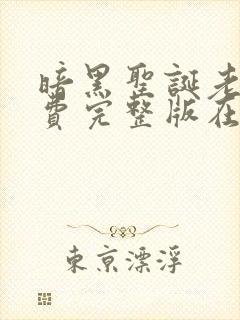 暗黑聖誕老
費完整版在
東京漂浮